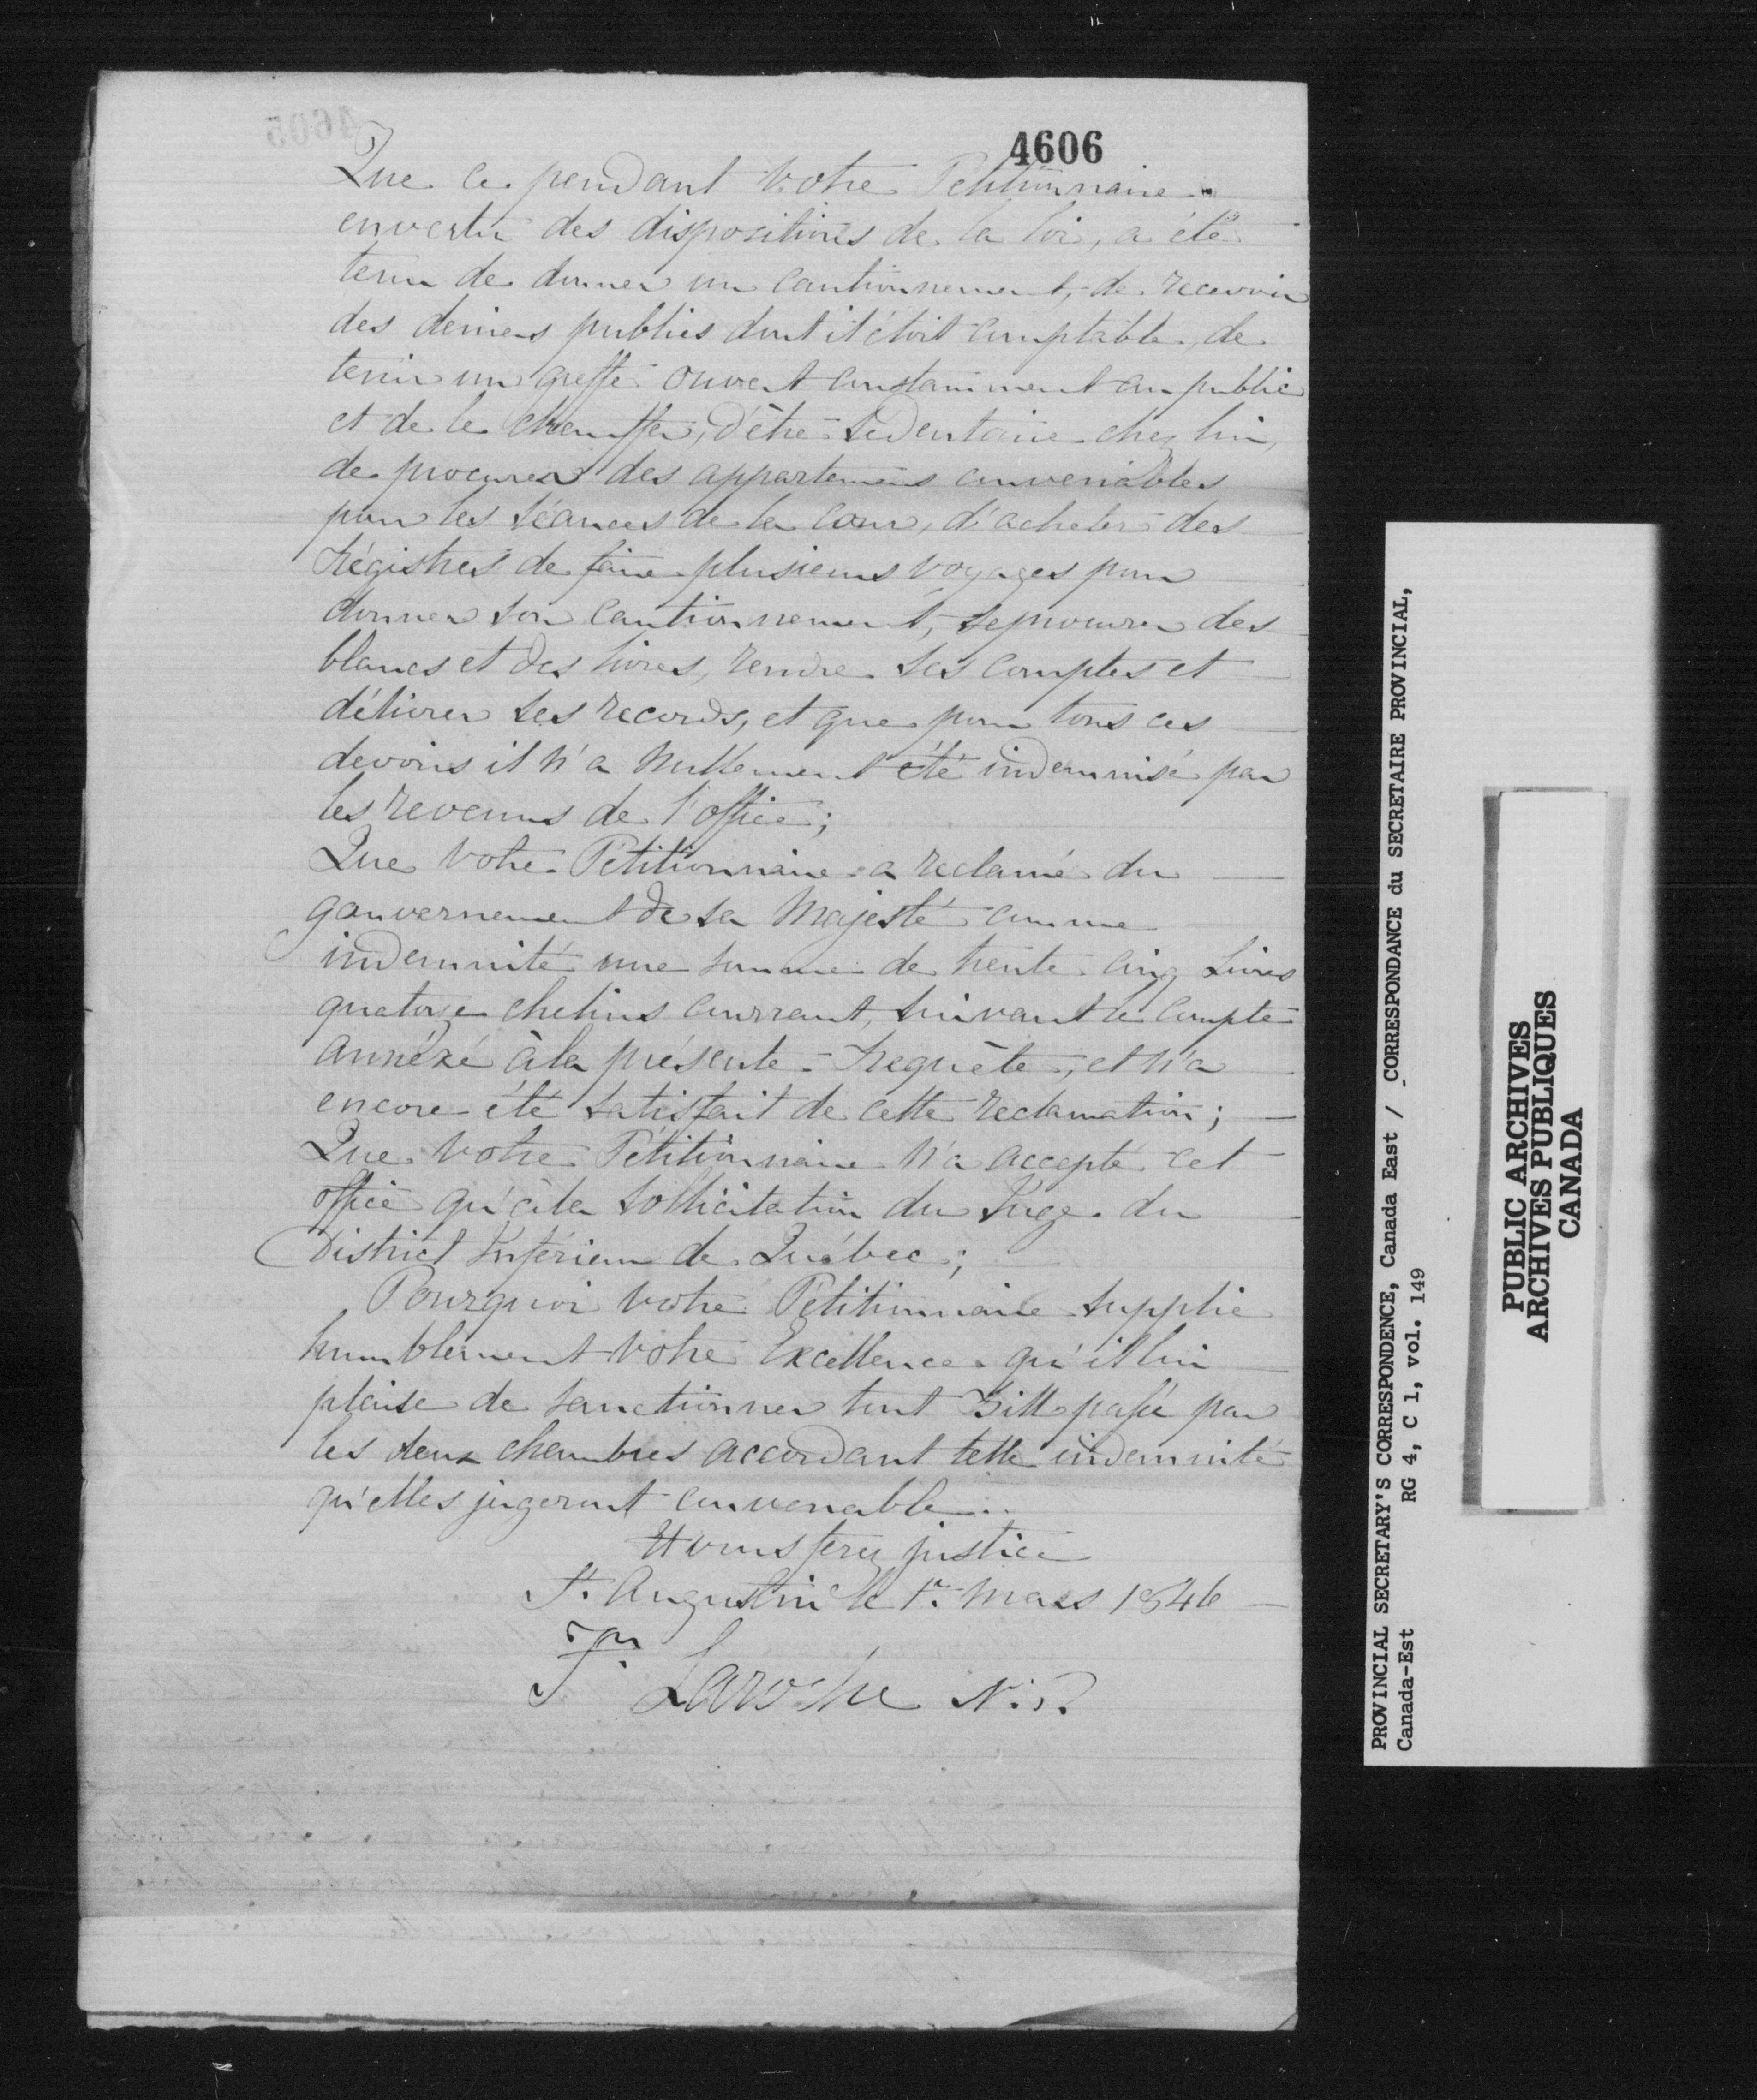 4606
Que ce pendant votre Pétitionnaire
en vertu des dispositions de la loi, a été
tenu de donner un cautionnement, de recevoir
des deniers publics dont il étoit comptable, de
tenir un greffe ouvert constamment au public
et de le chauffer, d'être sédentaire chez lui,
de procurer des appartemens convenables
pour les séances de la Cour, d'acheter des
Régistres de faire plusieurs voyages pour
donner son cautionnement, se procurer des
blancs et des livres, rendre ses comptes et
délivrer ses records, et que pour tous ces
devoirs il n'a nullement été indemnisé par
les revenus de l'office;
Que votre Pétitionnaire a reclamé du
gouvernement de sa Majesté comme
indemnité une somme de trente cinq Livres
quatorze chelins courrant, suivant le compte
annéxé à la présente Requête, et n'a
encore été satisfait de cette reclamation;
Que votre Pétitionnaire n'a accepté cet
office qu'à la sollicitation du Juge du
District Inférieur de Québec;
Pourquoi votre Pétitionnaire supplie
humblement votre Excellence qu'il lui
plaise de sanctionner tout Bill passé par
les deux chambres accordant telle indemnité
qu'elles jugeront convenable.
Et vous ferez justice
St. Augustin le 1r. Mars 1846
Laroche N.P.
PROVINCIAL SECRETARY'S CORRESPONDENCE, Canada East / CORRESPONDANCE du SECRETAIRE PROVINCIAL,
Canada-Est RG 4, C 1, vol. 149
PUBLIC ARCHIVES
ARCHIVES PUBLIQUES
CANADA